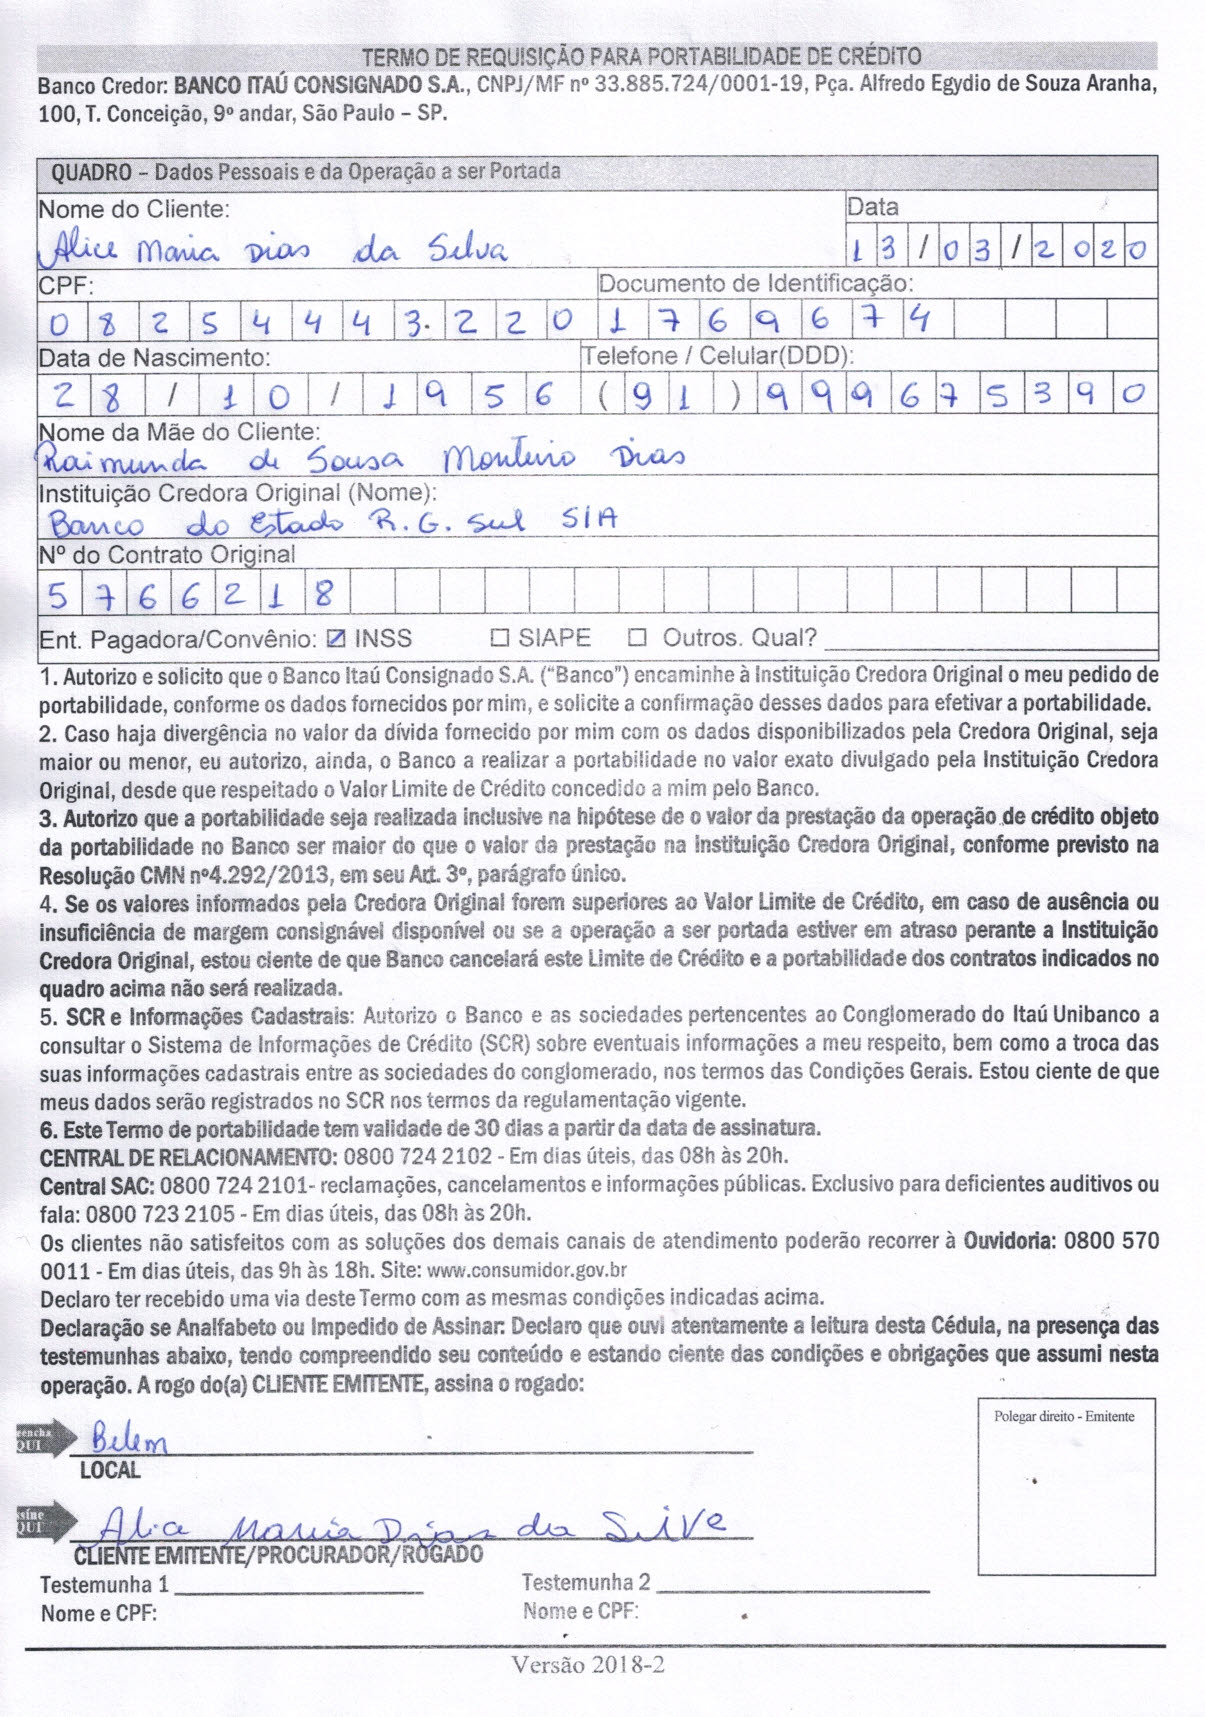 TERMO DE REQUISIÇÃO PARA PORTABILIDADE DE CRÉDITO
Banco Credor: BANCO ITAÚ CONSIGNADO S.A., CNPJ/MF nº 33.885.724/0001-19, Pça. Alfredo Egydio de Souza Aranha,
100, T. Conceição, 9º andar, São Paulo – SP.
QUADRO – Dados Pessoais e da Operação a ser Portada
Nome do Cliente: Data
Alice Maria Dias da Silva 13/03/2020
CPF: Documento de Identificação:
08254443.220 1769674
Data de Nascimento: Telefone / Celular(DDD):
28/10/1956 (91) 999675390
Nome da Mãe do Cliente:
Raimunda de Sousa Monteiro Dias
Instituição Credora Original (Nome):
Banco do Estado R.G. Sul S/A
Nº do Contrato Original
5766218
Ent. Pagadora/Convênio: ☑ INSS ☐ SIAPE ☐ Outros. Qual?
1. Autorizo e solicito que o Banco Itaú Consignado S.A. (“Banco”) encaminhe à Instituição Credora Original o meu pedido de
portabilidade, conforme os dados fornecidos por mim, e solicite a confirmação desses dados para efetivar a portabilidade.
2. Caso haja divergência no valor da dívida fornecido por mim com os dados disponibilizados pela Credora Original, seja
maior ou menor, eu autorizo, ainda, o Banco a realizar a portabilidade no valor exato divulgado pela Instituição Credora
Original, desde que respeitado o Valor Limite de Crédito concedido a mim pelo Banco.
3. Autorizo que a portabilidade seja realizada inclusive na hipótese de o valor da prestação da operação de crédito objeto
da portabilidade no Banco ser maior do que o valor da prestação na Instituição Credora Original, conforme previsto na
Resolução CMN nº4.292/2013, em seu Art. 3º, parágrafo único.
4. Se os valores informados pela Credora Original forem superiores ao Valor Limite de Crédito, em caso de ausência ou
insuficiência de margem consignável disponível ou se a operação a ser portada estiver em atraso perante a Instituição
Credora Original, estou ciente de que Banco cancelará este Limite de Crédito e a portabilidade dos contratos indicados no
quadro acima não será realizada.
5. SCR e Informações Cadastrais: Autorizo o Banco e as sociedades pertencentes ao Conglomerado do Itaú Unibanco a
consultar o Sistema de Informações de Crédito (SCR) sobre eventuais informações a meu respeito, bem como a troca das
suas informações cadastrais entre as sociedades do conglomerado, nos termos das Condições Gerais. Estou ciente de que
meus dados serão registrados no SCR nos termos da regulamentação vigente.
6. Este Termo de portabilidade tem validade de 30 dias a partir da data de assinatura.
CENTRAL DE RELACIONAMENTO: 0800 724 2102 - Em dias úteis, das 08h às 20h.
Central SAC: 0800 724 2101- reclamações, cancelamentos e informações públicas. Exclusivo para deficientes auditivos ou
fala: 0800 723 2105 - Em dias úteis, das 08h às 20h.
Os clientes não satisfeitos com as soluções dos demais canais de atendimento poderão recorrer à Ouvidoria: 0800 570
0011 - Em dias úteis, das 9h às 18h. Site: www.consumidor.gov.br
Declaro ter recebido uma via deste Termo com as mesmas condições indicadas acima.
Declaração se Analfabeto ou Impedido de Assinar: Declaro que ouvi atentamente a leitura desta Cédula, na presença das
testemunhas abaixo, tendo compreendido seu conteúdo e estando ciente das condições e obrigações que assumi nesta
operação. A rogo do(a) CLIENTE EMITENTE, assina o rogado:
Polegar direito - Emitente
Belem
LOCAL
Alice Maria Dias da Silva
CLIENTE EMITENTE/PROCURADOR/ROGADO
Testemunha 1 Testemunha 2
Nome e CPF: Nome e CPF:
Versão 2018-2